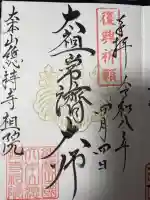 奉拝 令和八年
四月四日
復興祈願
太祖常濟大師
大本山總持寺祖院